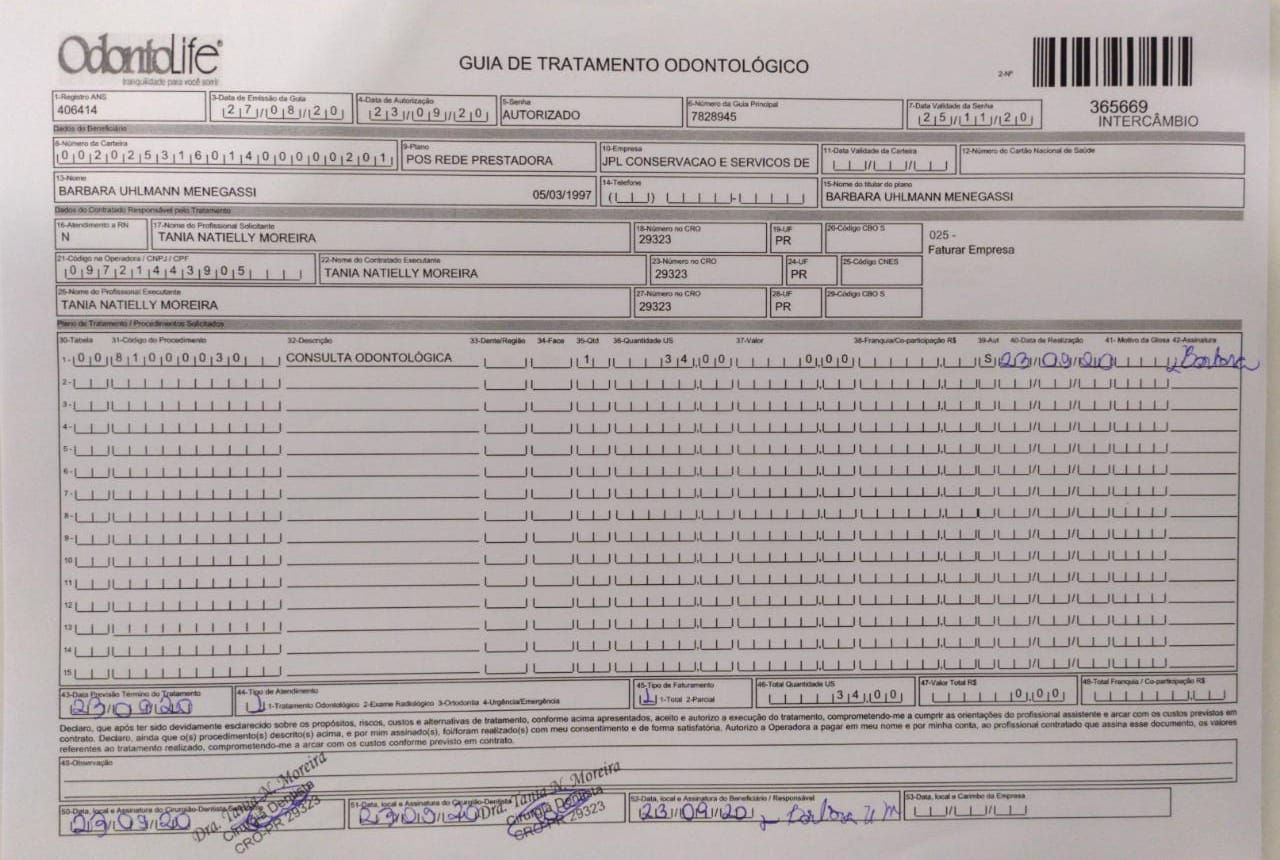 OdontoLife®
tranquilidade para você sorrir
GUIA DE TRATAMENTO ODONTOLÓGICO
2-Nº
365669
INTERCÂMBIO
1-Registro ANS
406414
3-Data de Emissão da Guia
27/08/20
4-Data de Autorização
23/09/20
5-Senha
AUTORIZADO
6-Número da Guia Principal
7828945
7-Data Validade da Senha
25/11/20
Dados do Beneficiário
8-Número da Carteira
00202531601400000201
9-Plano
POS REDE PRESTADORA
10-Empresa
JPL CONSERVACAO E SERVICOS DE
11-Data Validade da Carteira
12-Número do Cartão Nacional de Saúde
13-Nome
BARBARA UHLMANN MENEGASSI 05/03/1997
14-Telefone
15-Nome do titular do plano
BARBARA UHLMANN MENEGASSI
Dados do Contratado Responsável pelo Tratamento
16-Atendimento a RN
N
17-Nome do Profissional Solicitante
TANIA NATIELLY MOREIRA
18-Número no CRO
29323
19-UF
PR
20-Código CBO S
025 -
Faturar Empresa
21-Código na Operadora / CNPJ / CPF
09721443905
22-Nome do Contratado Executante
TANIA NATIELLY MOREIRA
23-Número no CRO
29323
24-UF
PR
25-Código CNES
26-Nome do Profissional Executante
TANIA NATIELLY MOREIRA
27-Número no CRO
29323
28-UF
PR
29-Código CBO S
Plano de Tratamento / Procedimentos Solicitados
30-Tabela 31-Código do Procedimento 32-Descrição 33-Dente/Região 34-Face 35-Qtd 36-Quantidade US 37-Valor 38-Franquia/Co-participação R$ 39-Aut 40-Data de Realização 41- Motivo da Glosa 42-Assinatura
1- 00 81000030 CONSULTA ODONTOLÓGICA 1 34,00 0,00 S 23/09/20 Barbara
2-
3-
4-
5-
6-
7-
8-
9-
10
11
12
13
14
15
43-Data Previsão Término do Tratamento
23/09/20
44-Tipo de Atendimento
1 1-Tratamento Odontológico 2-Exame Radiológico 3-Ortodontia 4-Urgência/Emergência
45-Tipo de Faturamento
1 1-Total 2-Parcial
46-Total Quantidade US
34,00
47-Valor Total R$
0,00
48-Total Franquia / Co-participação R$
Declaro, que após ter sido devidamente esclarecido sobre os propósitos, riscos, custos e alternativas de tratamento, conforme acima apresentados, aceito e autorizo a execução do tratamento, comprometendo-me a cumprir as orientações do profissional assistente e arcar com os custos previstos em
contrato. Declaro, ainda que o(s) procedimento(s) descrito(s) acima, e por mim assinado(s), foi/foram realizado(s) com meu consentimento e de forma satisfatória. Autorizo a Operadora a pagar em meu nome e por minha conta, ao profissional contratado que assina esse documento, os valores
referentes ao tratamento realizado, comprometendo-me a arcar com os custos conforme previsto em contrato.
49-Observação
50-Data, local e Assinatura do Cirurgião-Dentista
23/09/20
Dra. Tania N. Moreira
Cirurgiã Dentista
CRO-PR 29323
51-Data, local e Assinatura do Cirurgião-Dentista
23/09/20
Dra. Tania N. Moreira
Cirurgiã Dentista
CRO-PR 29323
52-Data, local e Assinatura do Beneficiário / Responsável
23/09/20 Barbara U M
53-Data, local e Carimbo da Empresa